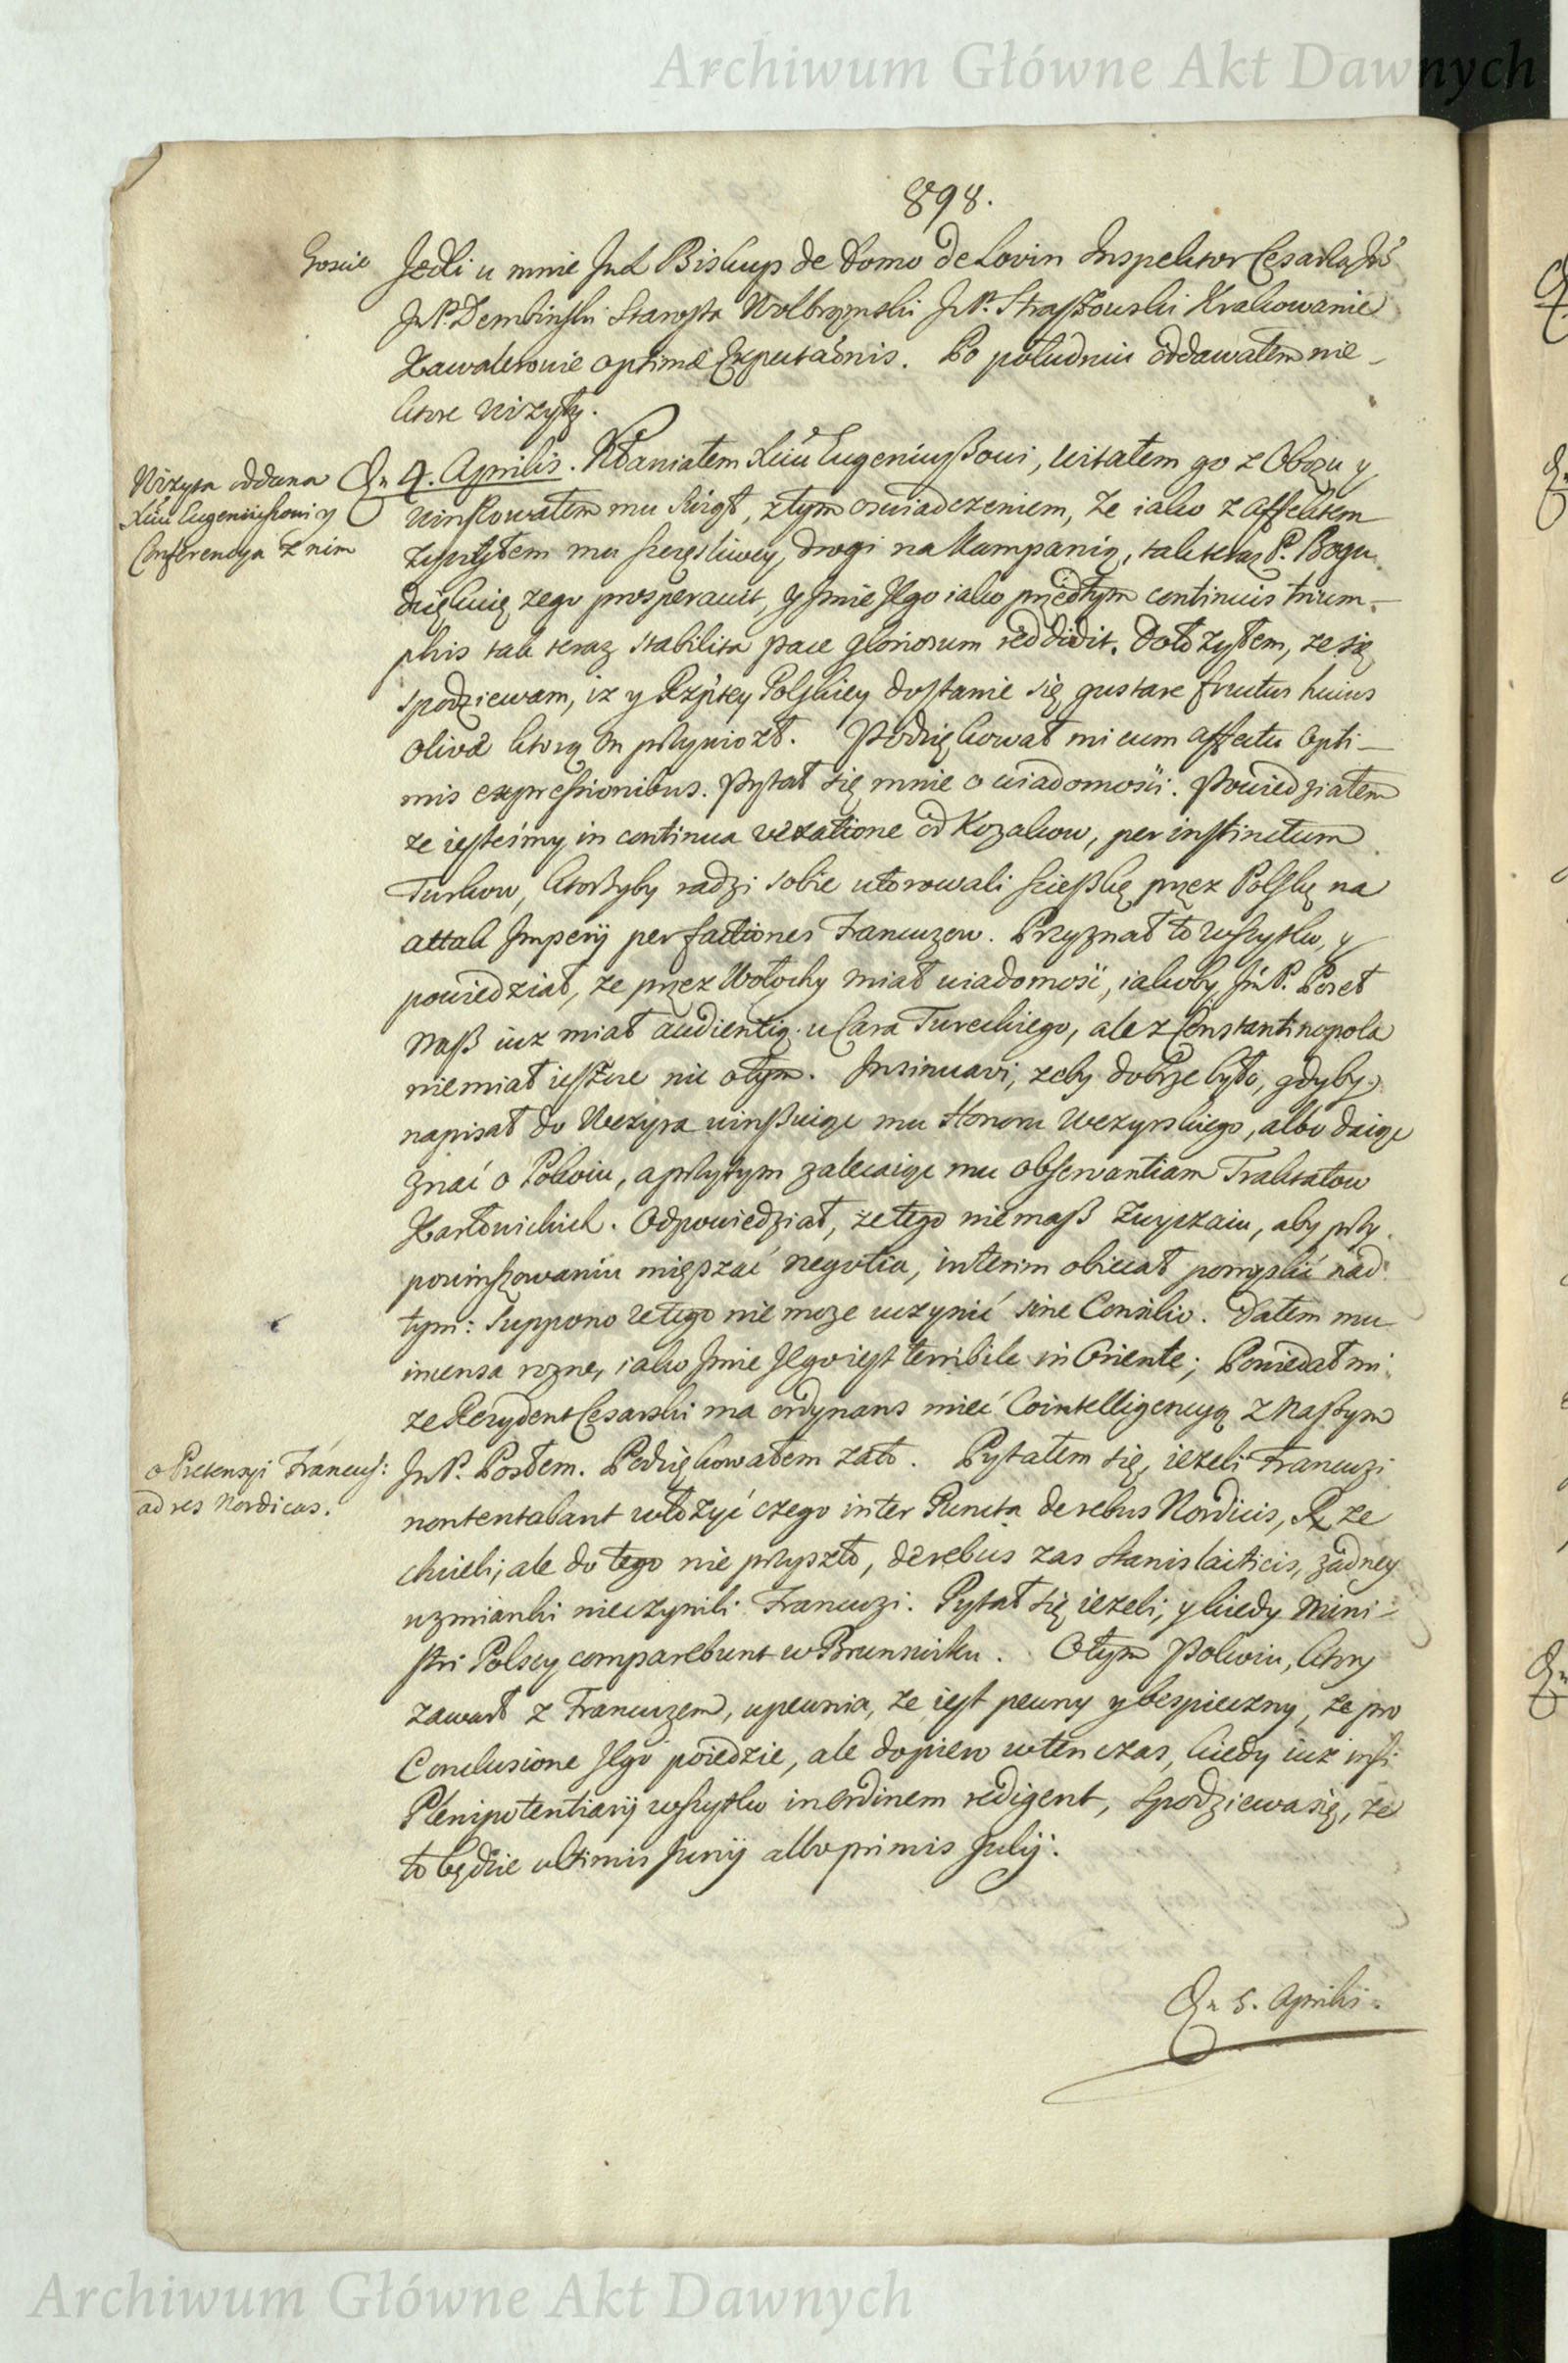 Archiwum Główne Akt Dawnych
898.
Goscie
Jedli u mnie JmX Biskup de Domo de Lovin Inspektor Cęsarski, Jmć
JmP. Dembinski Starosta Wolbromski JmP. Straszowski Krakowanie
Kawalerowie optimæ Expectaōnis. Po południu oddawałem nie-
ktore Wizyty.
Wizyta oddana
Xciu Eugeniuszowi y
Conferencya z nim
Dn 4. Aprilis. Kłaniałem Xciu Eugeniuszowi, witałem go z Obozu y
winszowałem mu Swiąt, z tym oswiadczeniem, ze iako z affektem
zyczyłem mu szczęsliwey drogi na Kampanią, tak teraz P. Bogu
dziękuię ze go prosperavit, y Jmie Jego iako przedtym continuis trium-
phis tak teraz stabilita pace gloriosum reddidit. Dołozyłem, ze się
spodziewam, iz y Rzptey Polskiey dostanie się gustare fructus huius
olivæ ktorą On przyniozł. Podziękował mi cum affectu opti-
mis expressionibus. Pytał się mnie o wiadomości. Powiedziałem
ze iestesmy in continua vexatione od Kozakow, per instinctum
Turkow, ktorzyby radzi sobie utorowali scieszkę przez Polskę na
attak Imperij per factiones Francuzow. Przyznał to wszystko, y
powiedział, ze przez Wołochy miał wiadomość, iakoby JmP. Poseł
nasz iuz miał audientią u Cara Tureckiego, ale z Constantinopola
nie miał ieszcze nic o tym. Insinuavi, zeby dobrze było, gdyby
napisał do Wezyra winszuiąc mu Honoru Wezyrskiego, albo daiąc
znać o Pokoiu, a przytym zalecaiąc mu observantiam Traktatow
Karłowickich. Odpowiedział, ze tego niemasz zwyczaiu, aby przy
powinszowaniu mięszać negotia, interim obiecał pomyslić nad
tym: Suppono ze tego nie moze uczynić sine Consilio. Dałem mu
incensa rozne, iako Jmie Jego iest terribile in Oriente; Powiedał mi
ze Rezydent Cęsarski ma ordynans mieć Cointelligencyą z Naszym
o Pretensyi Francus:
ad res Nordicas.
JmP. Posłem. Podziękowałem za to. Pytałem się, iezeli Francuzi
non tentabant włozyć czego inter Puncta de rebus Nordicis, R ze
chcieli; ale do tego nie przyszło, de rebus zas Stanislaiticis, zadney
wzmianki nie czynili Francuzi. Pytał się iezeli, y kiedy Mini-
stri Polscy comparebunt w Brunswiku. O tym Pokoiu, ktory
zawarł z Francuzem, upewnia, ze iest pewny y bespieczny, ze pro
Conclusione Jego poiedzie, ale dopiero w ten czas, kiedy iuz insi
Plenipotentiarij wszystko in ordinem redigent, spodziewa się, ze
to będzie ultimis Junij albo primis Julij.
Dn 5. Aprilis.
Archiwum Główne Akt Dawnych